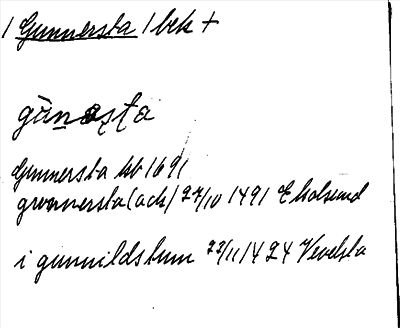 / Gunnersta / bek +
gùnas̨ţa
Gunnersta kb 1691
gwnnersta (ack) 27/10 1491 Ekolsund
i gunnildstum 23/11 1424 Vevelsta